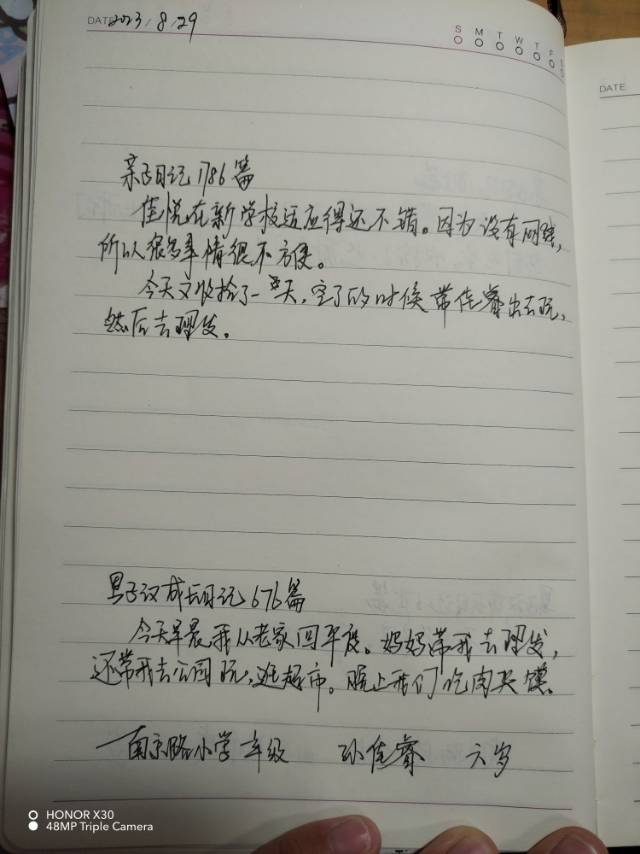 DATE 2023.8.29
S M T W T F
DATE
亲子日记1786篇
佳悦在新学校适应得还不错。因为没有网络,
所以很多事情很不方便。
今天又收拾了一天,空了的时候带佳睿出去玩,
然后去理发。
男子汉成长日记676篇
今天早晨我从老家回平度。妈妈带我去理发,
还带我去公园玩,逛超市。晚上我们吃肉夹馍。
南京路小学一年级 孙佳睿 六岁
HONOR X30
48MP Triple Camera